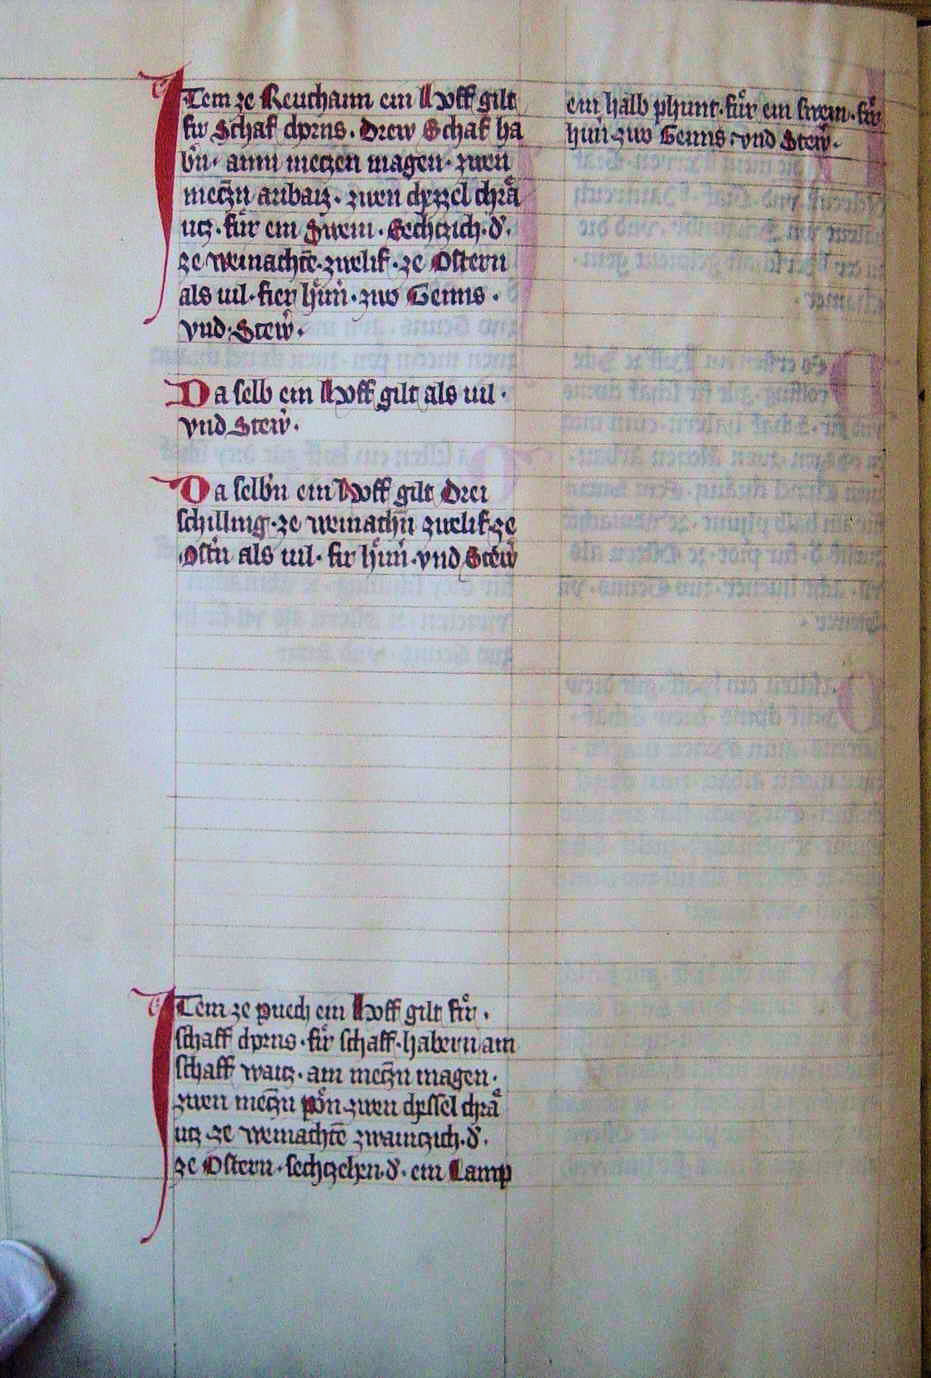 Item ze Reuchann ein Hoff gilt
fir Schaf chorns · Drew Schaf ha
bn̄ · ainn meczen magen · zwen
mecz̄n arbaiz · zwen chezzel chrå
utz · für ein Swein · Sechczich · d̄ ·
ze weinachtē · zwelif · ze Ostern
als uil · fier hůn̄ · zwo Genns ·
vnd · Stew̄r ·
Da selb ein Hoff gilt als uil ·
vnd Stew̄r ·
Da selbn̄ ein Hoff gilt Drei
schilling · ze weinachn̄ zwelif · ze
Ostn̄ als uil · fir hůn̄ · vnd Stew̄
Item ze puech ein Hoff gilt für ·
schaff chorns · für schaff · habern ain
schaff waitz · ain mecz̄n magen ·
zwen mecz̄n pon̄ zwen chessel chrå
utz · ze weinachtē zwainczich · d̄ ·
ze Ostern · sechczehen · d̄ · ein Lamp
ein halb phunt · für ein swein · für
hůn̄ · zwo Genns · vnd Stew̄ ·